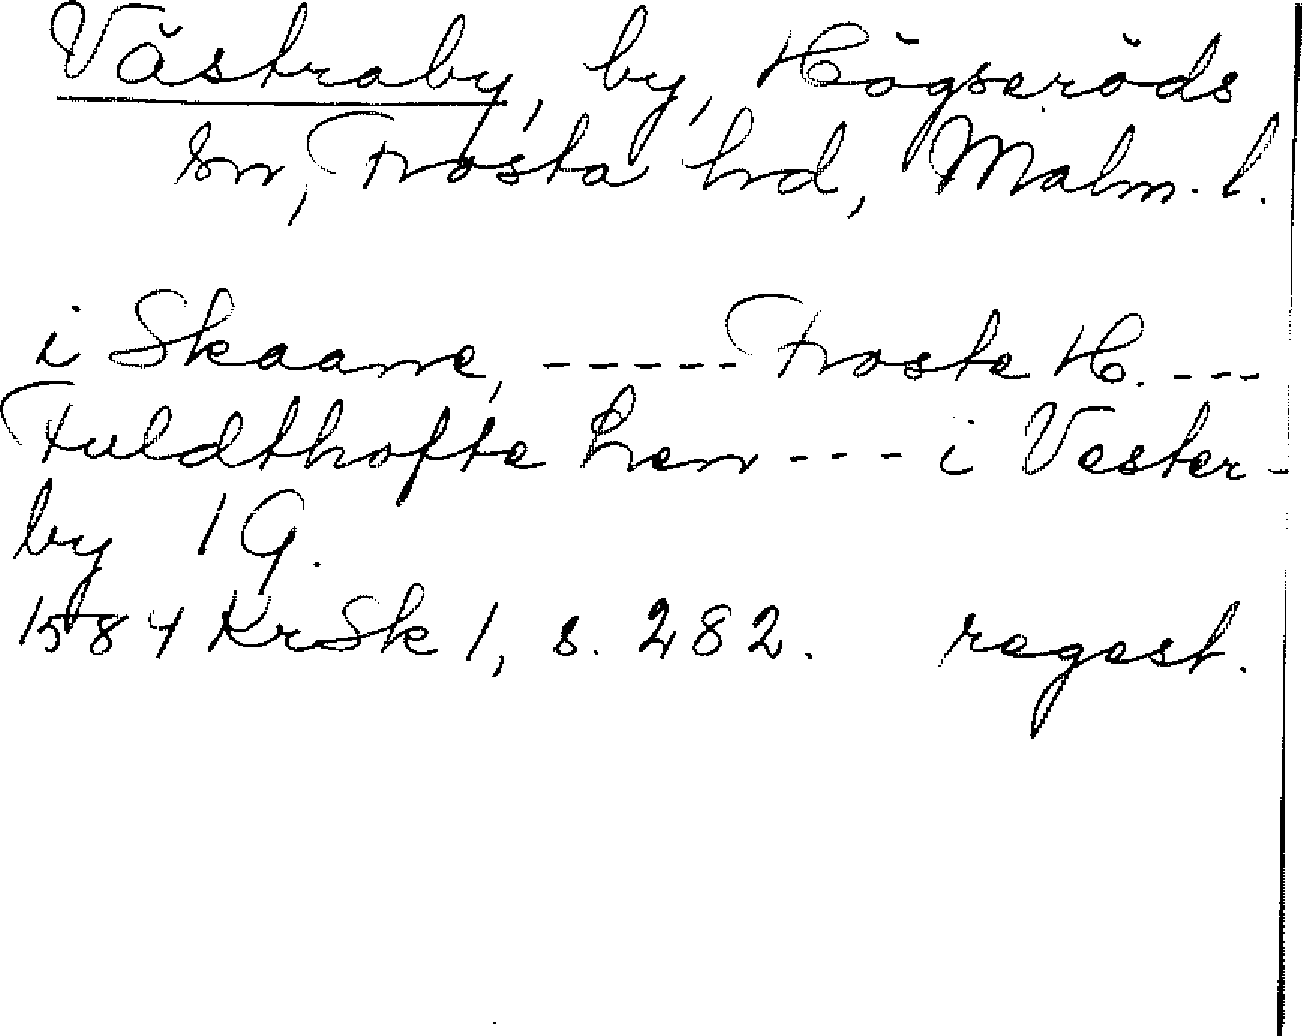 Västraby, by, Högseröds
sn, Frosta hrd, Malm. l.
i Skaane, ----- Froste H. ---
Fuldthofte Len --- i Vester-
by 1 G.
1584 KrSk 1, s. 282. regest.